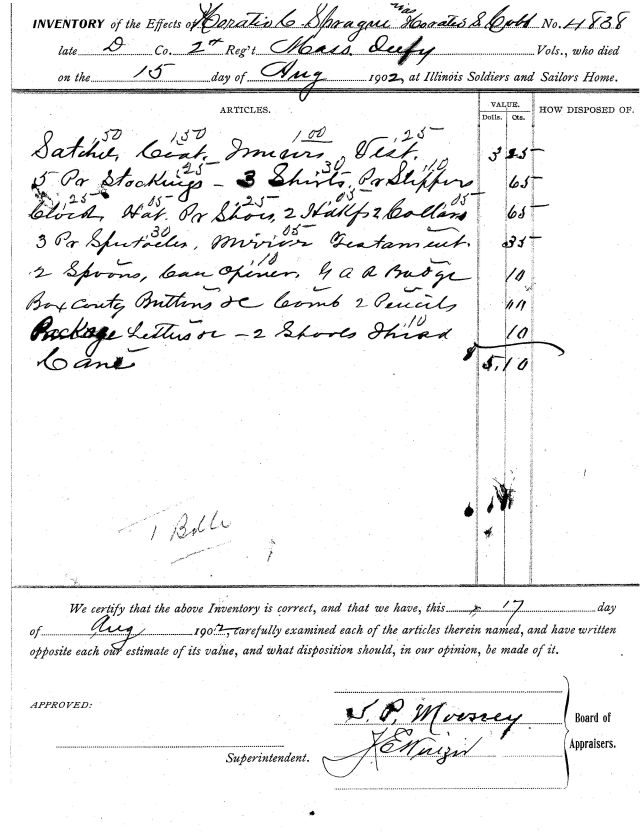 INVENTORY of the Effects of Horatio C. Sprague was Horatio S. Cobb No. 4838
late D Co. 2nd Reg't Mass Vols., who died
on the 15 day of Aug 1902, at Illinois Soldiers and Sailors Home.
ARTICLES. VALUE. HOW DISPOSED OF.
Dolls. Cts.
50 150 1.00 25
Satchel, Coat, Trousers, Vest. 3 25
25 30 10
5 Pr Stockings - 3 Shirts, Pr Slippers 65
25 05 25 05 05
Clock, Hat, Pr Shoes, 2 Hdkfs 2 Collars 65
30 05
3 Pr Spectacles, Mirror Testament. 35
10
2 Spoons, Can Opener, G A R Badge 10
Box Buttons &c Comb 2 Pencils
10
Package Letters &c - 2 Spools Thread 10
Cane 5.10
1
We certify that the above Inventory is correct, and that we have, this 17 day
of Aug 1902, carefully examined each of the articles therein named, and have written
opposite each our estimate of its value, and what disposition should, in our opinion, be made of it.
APPROVED:
Superintendent.
Board of
Appraisers.